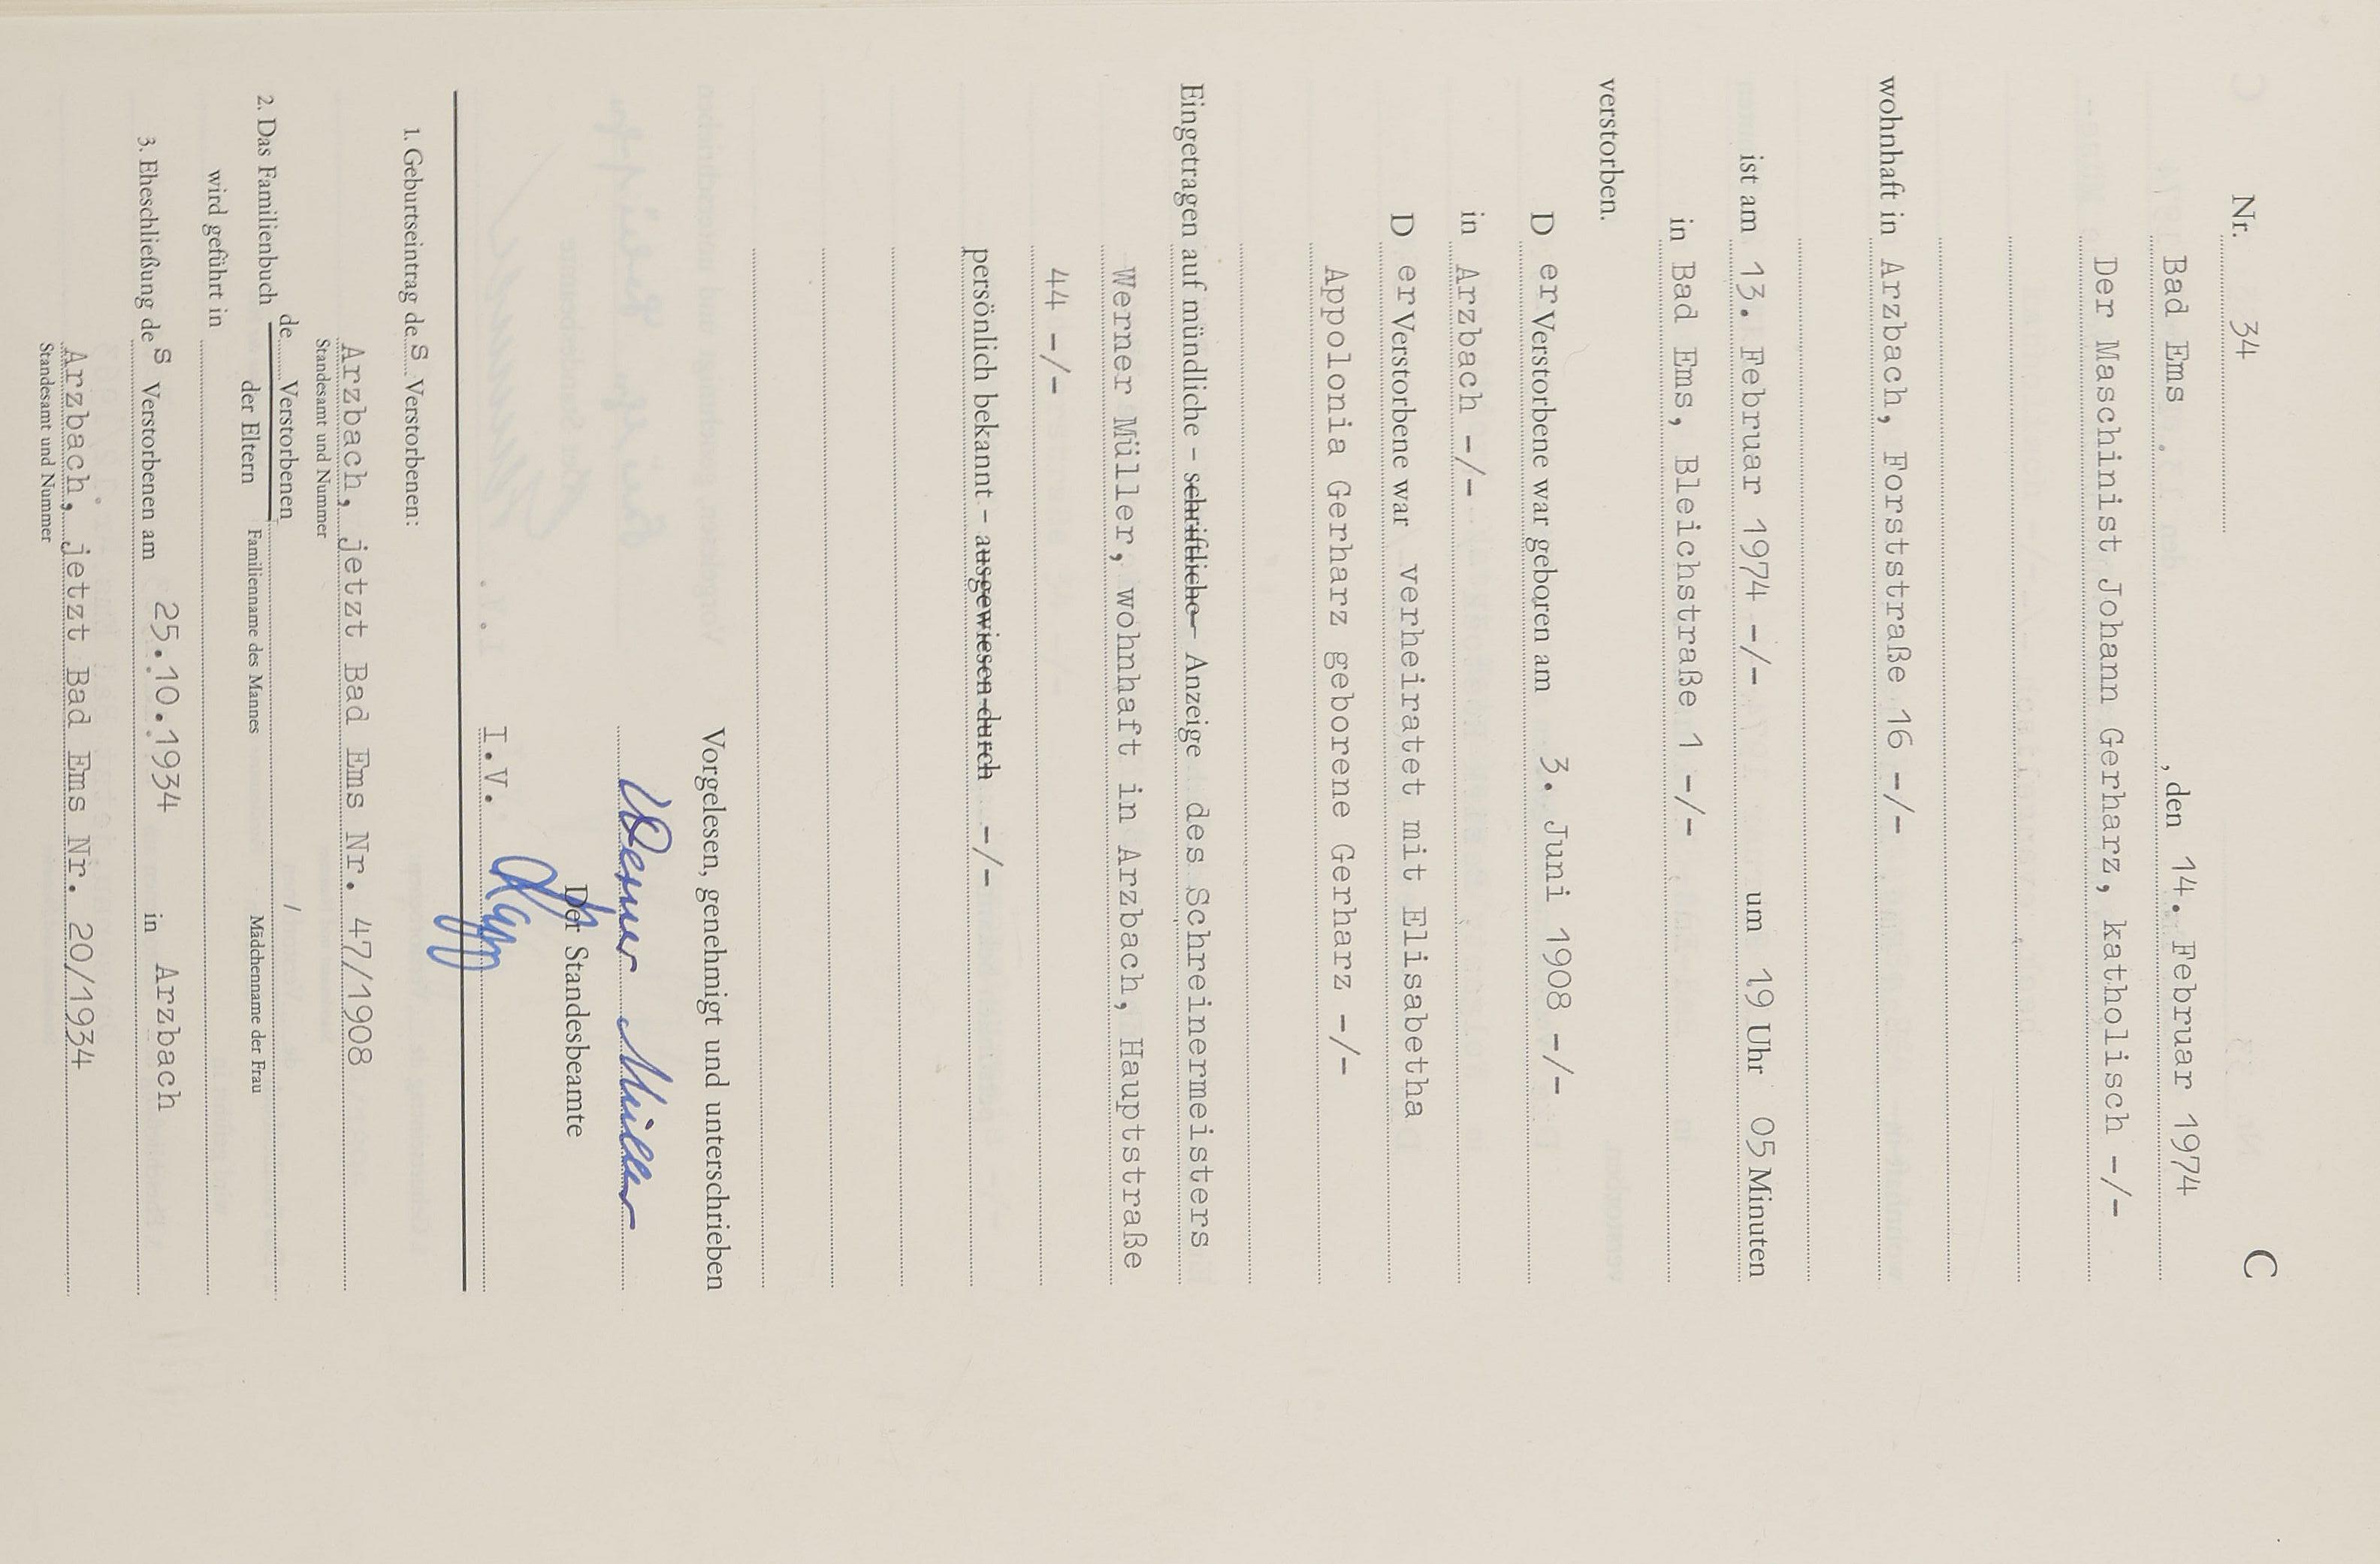 C
Nr. 34
Bad Ems, den 14. Februar 1974
Der Maschinist Johann Gerharz, katholisch -/-
wohnhaft in Arzbach, Forststraße 16 -/-
ist am 13. Februar 1974 -/- um 19 Uhr 05 Minuten
in Bad Ems, Bleichstraße 1 -/-
verstorben.
D er Verstorbene war geboren am 3. Juni 1908 -/-
in Arzbach -/-
D er Verstorbene war verheiratet mit Elisabetha
Appolonia Gerharz geborene Gerharz -/-
Eingetragen auf mündliche - schriftliche - Anzeige des Schreinermeisters
Werner Müller, wohnhaft in Arzbach, Hauptstraße
44 -/-
persönlich bekannt - ausgewiesen durch -/-
Vorgelesen, genehmigt und unterschrieben
Werner Müller
Der Standesbeamte
I.V.
1. Geburtseintrag des Verstorbenen:
Arzbach, jetzt Bad Ems Nr. 47/1908
Standesamt und Nummer
de Verstorbenen /
2. Das Familienbuch
der Eltern Familienname des Mannes Mädchenname der Frau
wird geführt in
3. Eheschließung des Verstorbenen am 25.10.1934 in Arzbach
Arzbach, jetzt Bad Ems Nr. 20/1934
Standesamt und Nummer